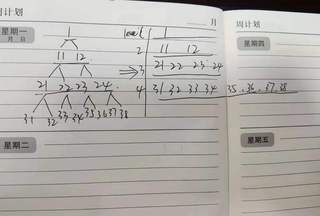 周计划
月
周计划
星期一
月 日
1
level 1
11 12
2 11 12
星期四
21 22 23 24
⇒ 3 21 22 23 24
31 32 33 34 35 36 37 38
4 31 32 33 34 35. 36. 37. 38
星期二
星期五